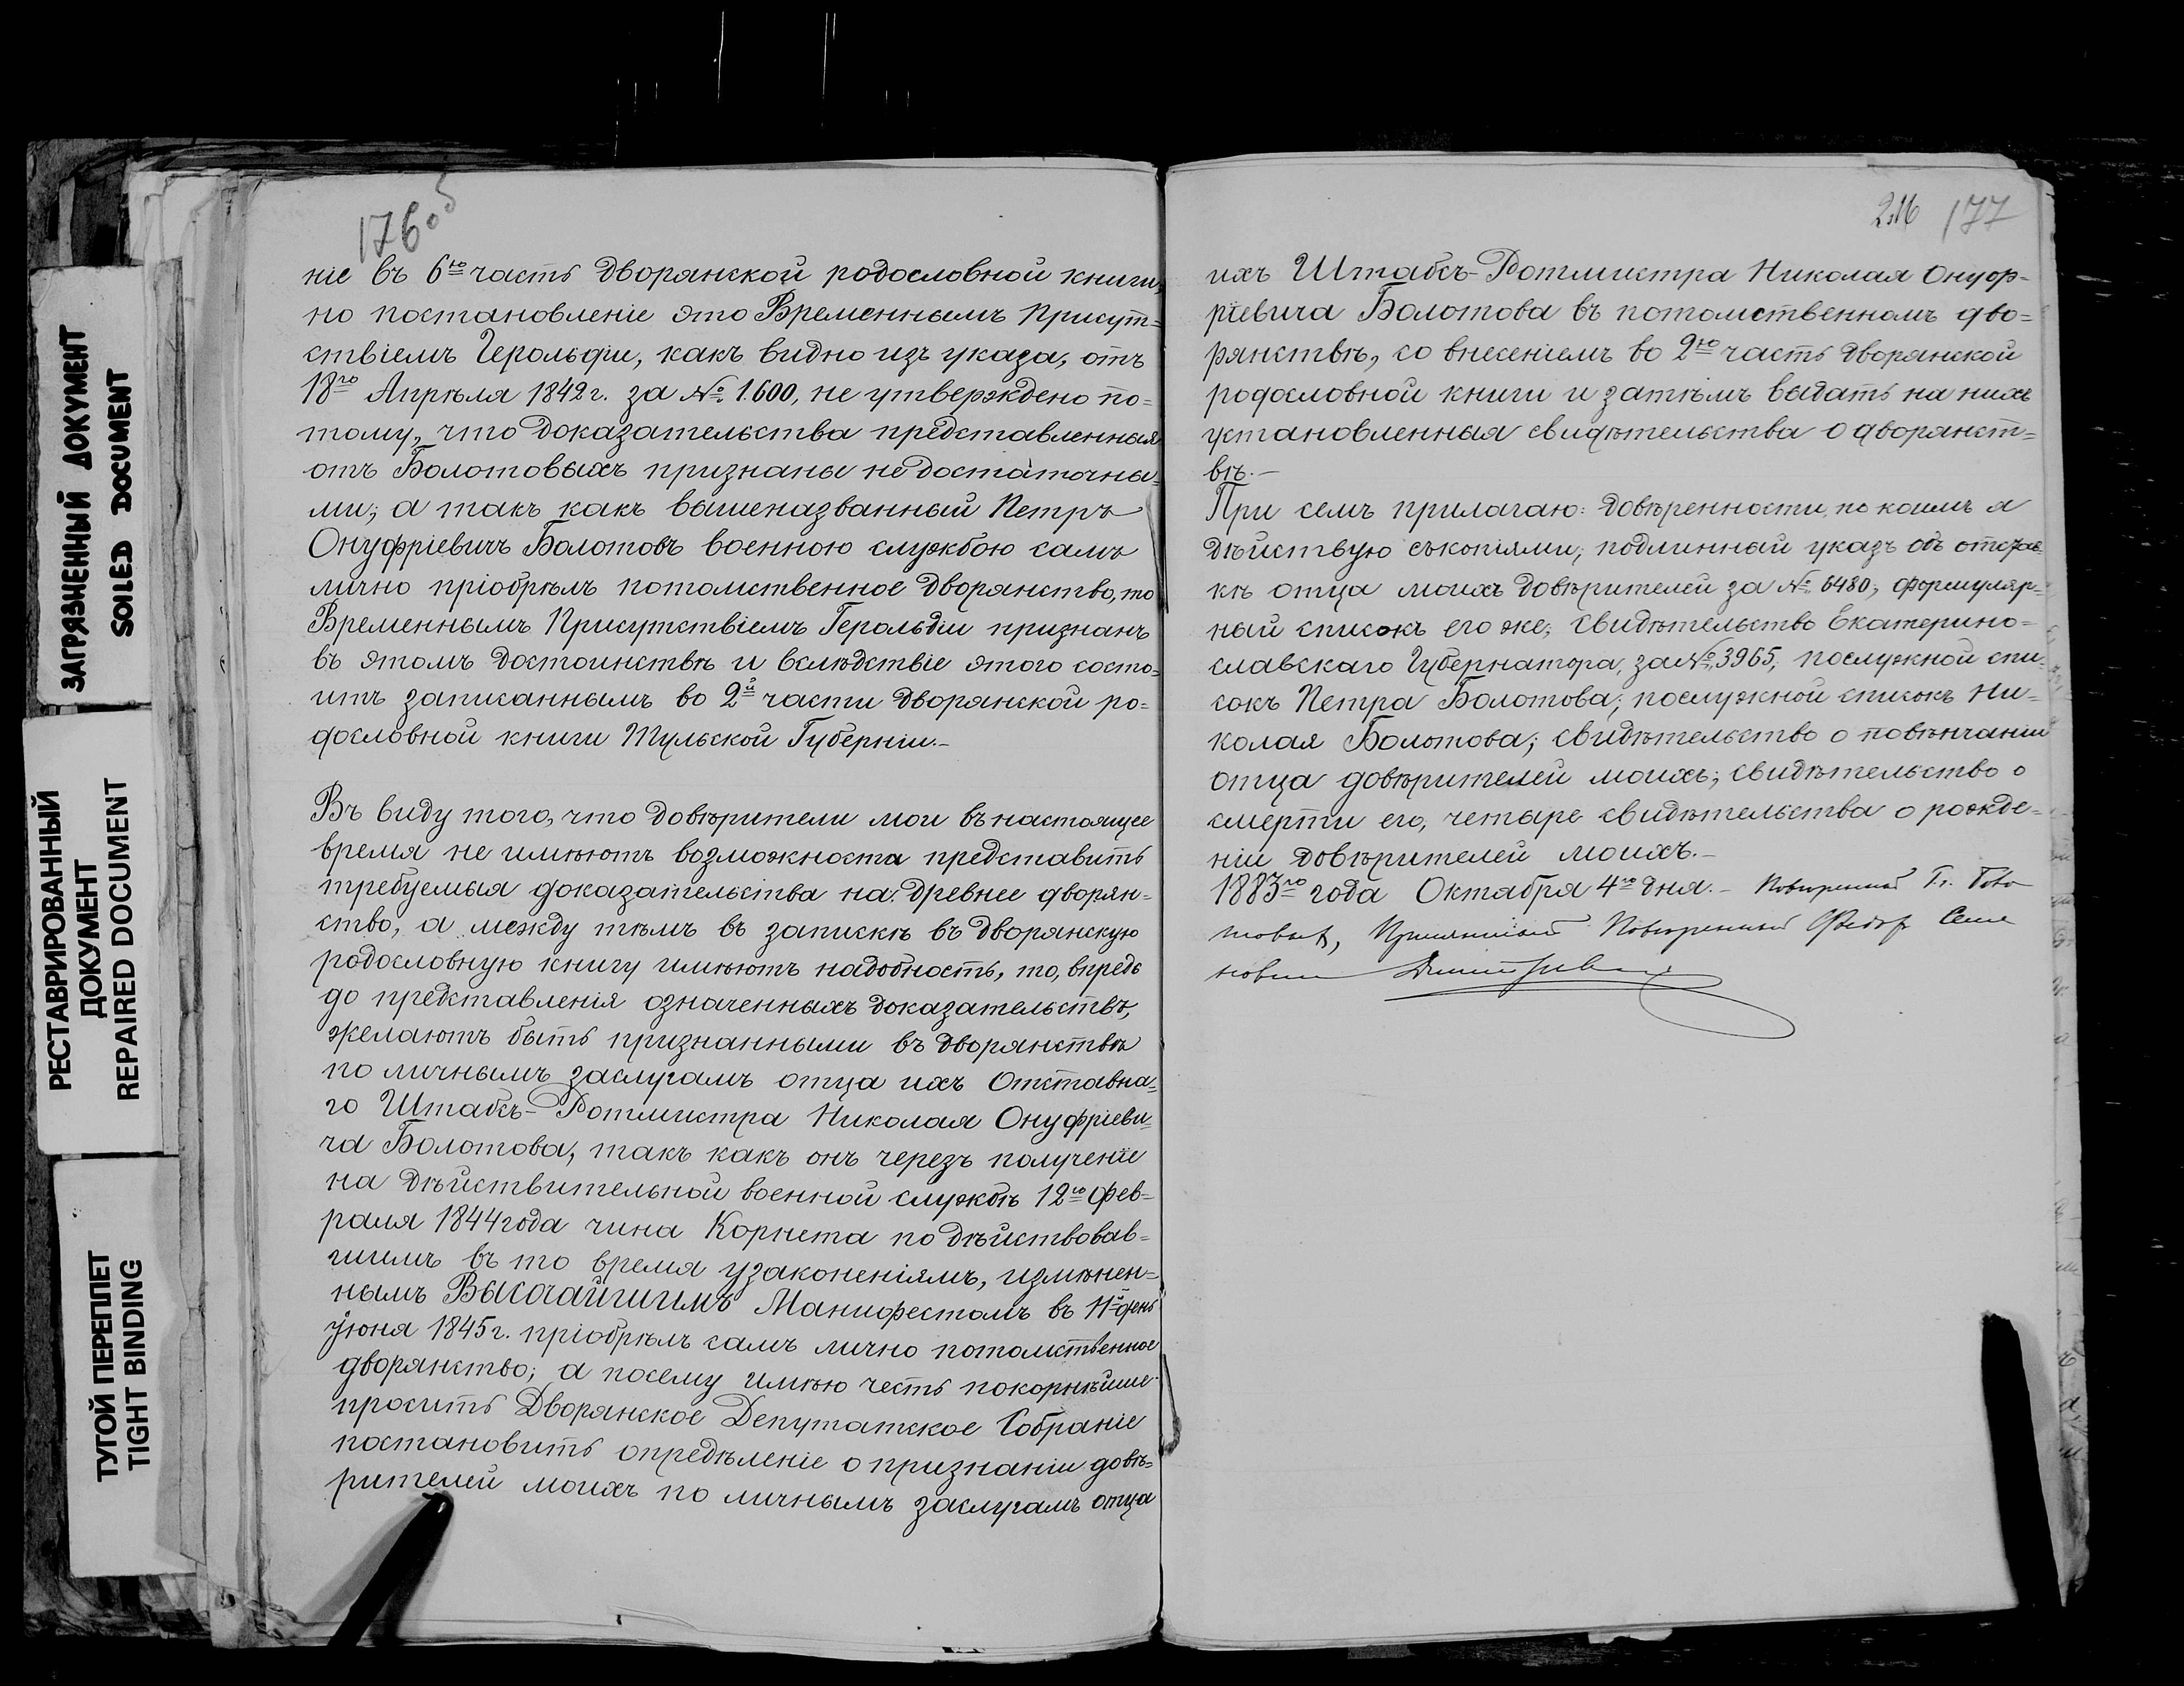 ЗАГРЯЗНЕННЫЙ ДОКУМЕНТ
SOILED DOCUMENT
РЕСТАВРИРОВАННЫЙ
ДОКУМЕНТ
REPAIRED DOCUMENT
ТУГОЙ ПЕРЕПЛЕТ
TIGHT BINDING
176 об
ніе въ 6ю часть Дворянской родословной книги,
но постановленіе это Временнымъ Присут=
ствіемъ Герольдіи, какъ видно изъ указа, отъ
18го Апрѣля 1842 г. за № 1.600, не утверждено по=
тому, что доказательства представленныя
отъ Болотовыхъ признаны недостаточны=
ми; а такъ какъ вышеназванный Петръ
Онуфріевичъ Болотовъ военною службою самъ
лично пріобрѣлъ потомственное Дворянство, то
Временнымъ Присутствіемъ Герольдіи признанъ
въ этомъ достоинствѣ и вслѣдствіе этого состо=
итъ записаннымъ во 2й части Дворянской ро=
дословной книги Тульской Губерніи.-
Въ виду того, что довѣрители мои въ настоящее
время не имѣютъ возможности представить
требуемыя доказательства на древнее дворян=
ство, а между тѣмъ въ запискѣ въ Дворянскую
родословную книгу имѣютъ надобность, то, впредь
до представленія означенныхъ доказательствъ,
желаютъ быть признанными въ дворянствѣ
по личнымъ заслугамъ отца ихъ Отставна=
го Штабсъ-Ротмистра Николая Онуфріеви=
ча Болотова, такъ какъ онъ черезъ полученіе
на дѣйствительной военной службѣ 12го Фев=
раля 1844 года чина Корнета по дѣйствовав=
шимъ въ то время узаконеніямъ, измѣнен=
нымъ Высочайшимъ Манифестомъ въ 11й день
Іюня 1845 г. пріобрѣлъ самъ лично потомственное
дворянство; а посему имѣю честь покорнѣйше
просить Дворянское Депутатское Собраніе
постановить опредѣленіе о признаніи довѣ=
рителей моихъ по личнымъ заслугамъ отца
216 177
ихъ Штабсъ-Ротмистра Николая Онуф=
ріевича Болотова въ потомственномъ дво=
рянствѣ, со внесеніемъ во 2ю часть Дворянской
родословной книги и затѣмъ выдать на нихъ
установленныя свидѣтельства о дворянст=
вѣ.-
При семъ прилагаю: довѣренности, по коимъ я
дѣйствую съ копіями, подлинный указъ объ отстав=
кѣ отца моихъ довѣрителей за № 6480; формуляр=
ный списокъ его же; свидѣтельство Екатерино=
славскаго Губернатора, за № 3965, послужной спи=
сокъ Петра Болотова; послужной списокъ Ни=
колая Болотова; свидѣтельство о повѣнчаніи
отца довѣрителей моихъ; свидѣтельство о
смерти его, четыре свидѣтельства о рожде=
ніи довѣрителей моихъ.-
1883го года Октября 4го дня.- Повѣренный Г.г. Боло
товыхъ, Присяжный Повѣренный Федор Семе